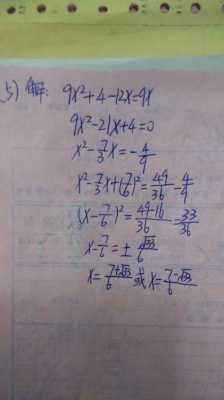 5) 解: 9x²+4-12x=9x
9x²-21x+4=0
x²-7/3x=-4/9
x²-7/3x+(7/6)²=49/36-4/9
(x-7/6)²=49-16/36=33/36
x-7/6=±√33/6
x=7+√33/6或x=7-√33/6